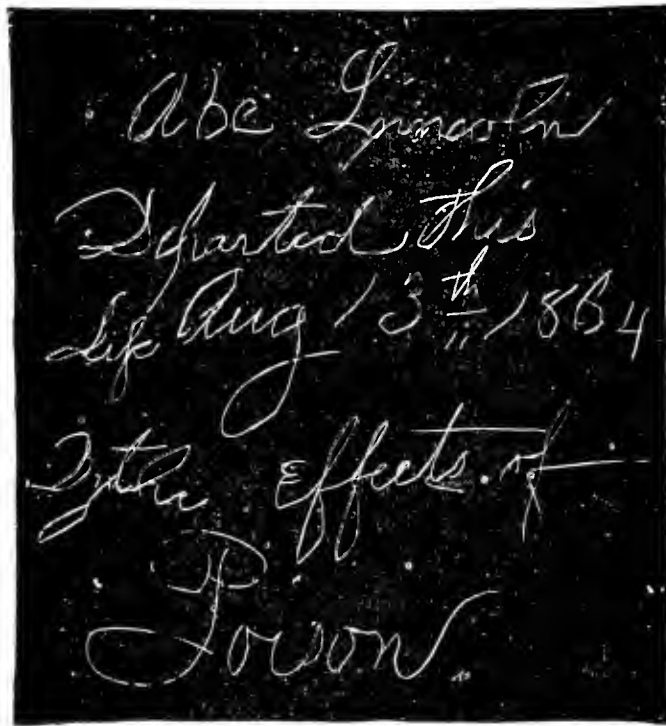 Abe Lincoln
Departed This
Life Aug 13th 1864
By the Effects of
Poison